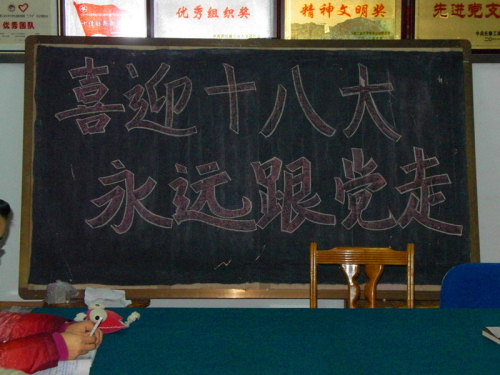 优秀团队
优秀组织奖
精神文明奖
先进党支
喜迎十八大
永远跟党走